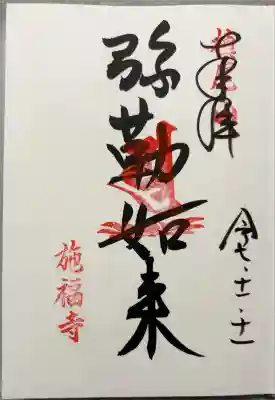 奉拝
令七・十一・十一
弥勒如来
施福寺